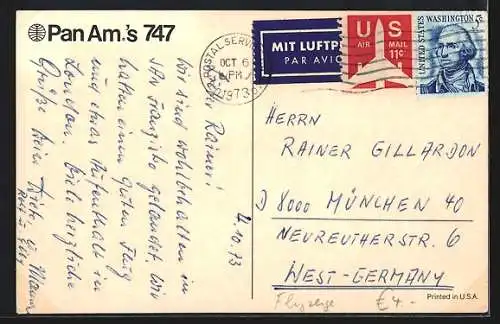 Pan Am.'s 747
POSTAL SERVICE
OCT 6
PM
1973
MIT LUFTPO
PAR AVIO
US
AIR MAIL
11¢
UNITED STATES
WASHINGTON 5¢
4.10.73
Lieber Rainer!
Wir sind wohlbehalten in
San Franzisko gelandet. Wir
hatten einen guten Flug
und etwas Aufenthalt in
London. Viele herzliche
Grüße Deine
HERRN
RAINER GILLARDON
D 8000 MÜNCHEN 40
NEUREUTHERSTR. 6
WEST-GERMANY
Flugzeuge €4.-
Printed in U.S.A.